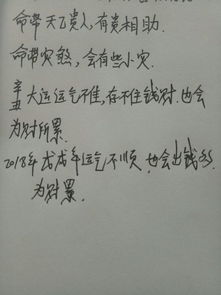 命带天乙贵人,有贵相助.
命带灾煞,会有些小灾.
辛丑大运运气不佳,存不住钱财.也会
为财所累.
2018年戊戌年运气不顺,也会出钱多
为财累.